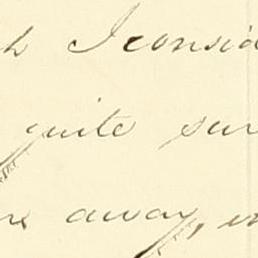 h I consid
quite sur
away, w